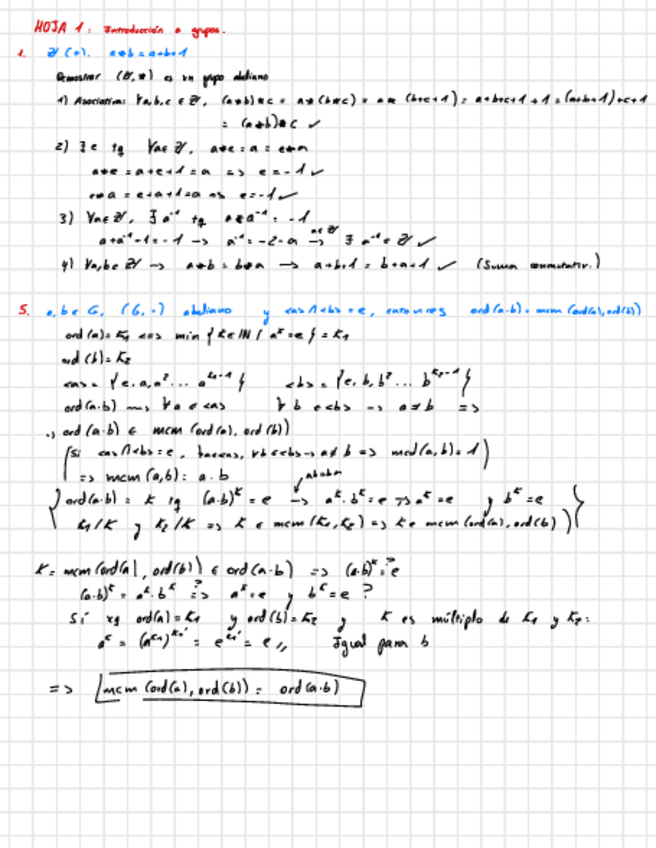 HOJA 1: Introducción a grupos.
1. ℤ (+). a*b = a+b+1
Demostrar (ℤ, *) es un grupo abeliano
1) Asociativa: ∀a,b,c ∈ ℤ, (a*b)*c = a*(b*c) = a* (b+c+1) = a+b+c+1+1 = (a+b+1)+c+1
= (a*b)*c ✓
2) ∃ e tq ∀a∈ℤ, a*e = a = e*a
a*e = a+e+1 = a => e = -1 ✓
e*a = e+a+1 = a => e = -1 ✓
3) ∀a∈ℤ, ∃ a⁻¹ tq a*a⁻¹ = -1
a+a⁻¹+1 = -1 -> a⁻¹ = -2-a -> a∈ℤ ∃ a⁻¹ ∈ ℤ ✓
4) ∀a,b∈ℤ -> a*b = b*a -> a+b+1 = b+a+1 ✓ (Suma conmutativ.)
5. a,b ∈ G, (G,·) abeliano y <a>∩<b> = e, entonces ord(a·b) = mcm (ord(a),ord(b))
ord(a) = K₁ <=> min { K∈ℕ / aᵏ = e } = K₁
ord(b) = K₂
<a> = {e, a, a² ... a^(K₁-1)} <b> = {e, b, b² ... b^(K₂-1)}
ord(a·b) ∀a ∈ <a> ∀b ∈ <b> -> a≠b =>
ord(a·b) ∈ mcm (ord(a), ord(b))
(Si <a>∩<b> = e, ∀a∈<a>, ∀b∈<b> -> a≠b => mcd(a,b) = 1)
=> mcm(a,b) = a·b
ord(a·b) = K tq (a·b)ᵏ = e -> aᵏ·bᵏ = e => aᵏ = e y bᵏ = e
K₁/K y K₂/K => K ∈ mcm(K₁,K₂) => K ∈ mcm(ord(a),ord(b))
K = mcm(ord(a), ord(b)) ∈ ord(a·b) => (a·b)ᵏ ?= e
(a·b)ᵏ = aᵏ·bᵏ ?=> aᵏ = e y bᵏ = e ?
Sí xq ord(a) = K₁ y ord(b) = K₂ y K es múltiplo de K₁ y K₂:
aᵏ = (a^K₁)^K₁' = e^K₁' = e // Igual para b
=> mcm (ord(a), ord(b)) = ord(a·b)